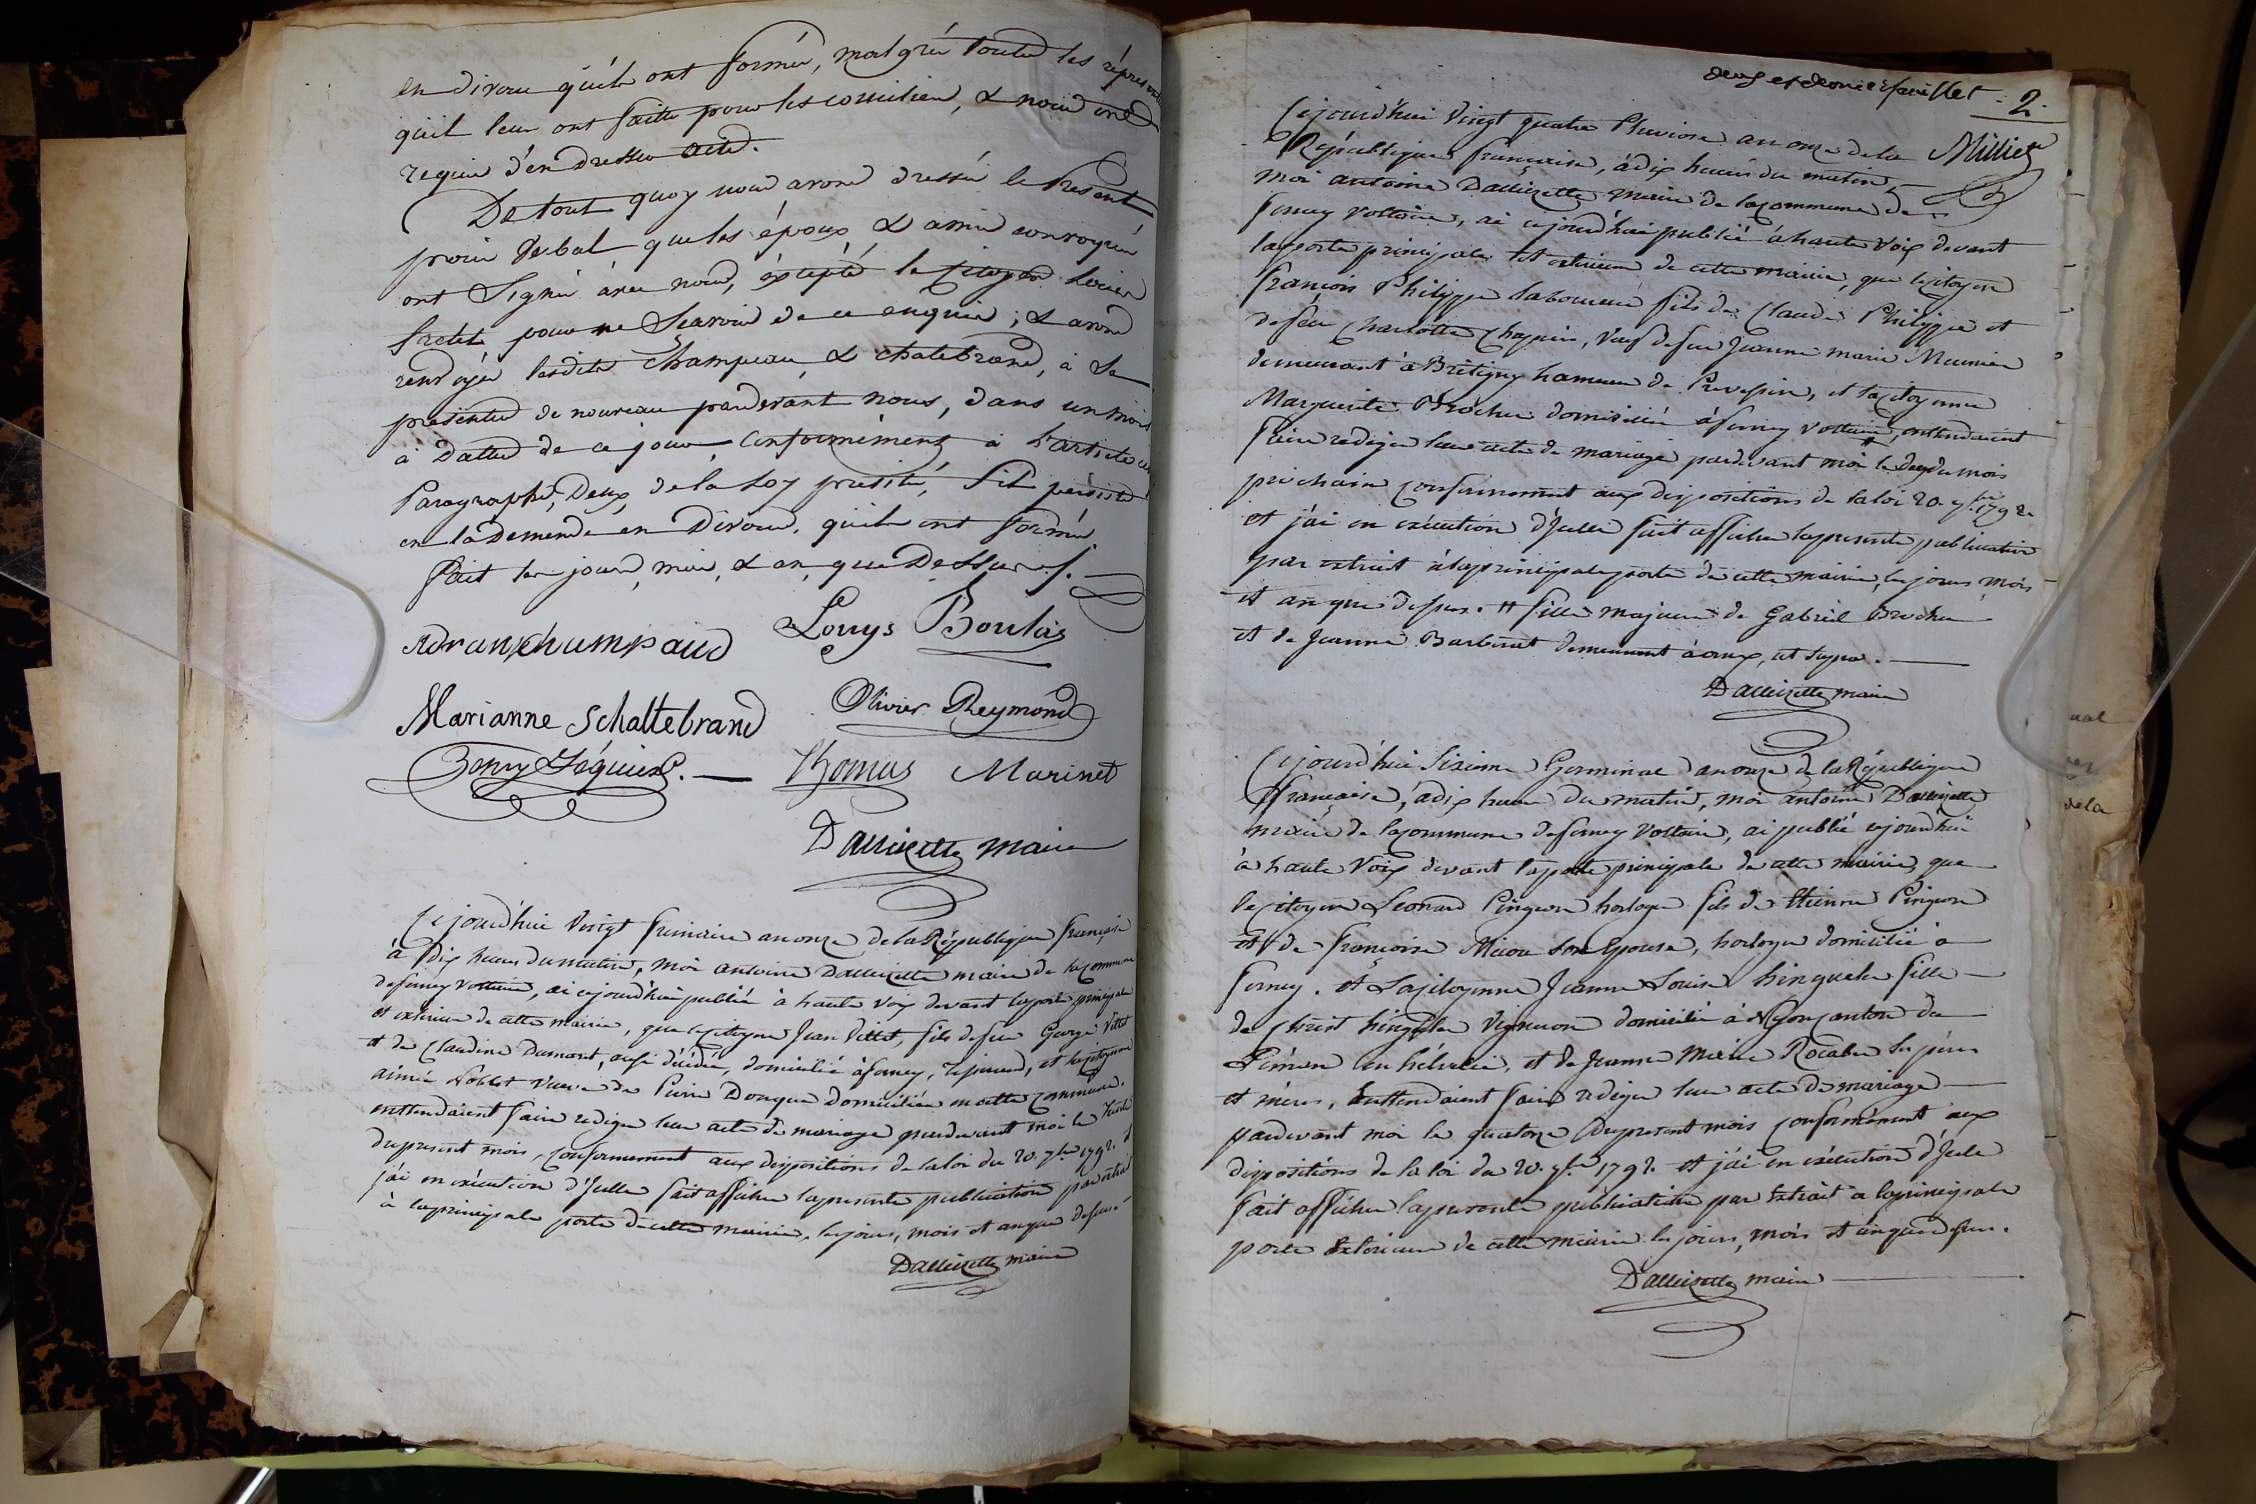 en divorce qu'ils ont formée, malgré toutes les
qu'il leur ont faitte pour les concilier, & nous ont
requis d'en dresser acte.
De tout quoy nous avons dressé le présent
procès verbal que les époux & amis convoqués
ont signé avec nous, éxcepté le Citoyen
pour ne sçavoir de ce enquis ; & avons
renvoyés lesdits Champeau, & Chatebrand, à se
présenter de nouveau pardevant nous, dans un mois
à datter de ce jour, Conformément à l'article
Paragraphe, Deux, de la Loy précité, S'il persiste
en la Demende en Divorce, qu'ils ont formé.
fait les jour, mois, & an que Dessus ./.
adranchampaud
Louys Boulas
Marianne Schaltebrand
Olivier Reymond
Thomas Marinet
Dallizette maire
Cejourd'hui Vingt frimaire an onze de la République française
à Dix heures du matin, moi antoine Dallizette maire de la commune
de ferney voltaire, ai cejourd'hui publié à haute voix devant la porte principale
et exterieure de cette mairie, que le citoyen Jean Vittet, fils de feu George Vittet
et de Claudine Dumont, aussi décédée, domicilié à ferney, et la citoyenne
aimée Noblet veuve de Pierre Donque domiciliée en cette commune.
enttendaient faire rediger leur acte de mariage pardevant moi le trente
du present mois, conformement aux dispositions de la loi du 20. 7bre 1792. et
j'ai en exécution d'Jcelle fait afficher la presente publication par extrait
à la principale porte de cette mairie, les jours, mois et an que dessus.
Dallizette maire
deux et dernier feuillet . 2.
Milliet
Cejourd'hui Vingt quatre Pluviose an onze de la
République française, à dix heures du matin,
moi antoine Dallizette maire de la commune de
ferney voltaire, ai cejourd'hui publié à haute voix devant
la porte principale et exterieure de cette mairie, que le citoyen
françois Philippe laboureur fils de Claude Philippe et
de feu Charlotte Chapuis, Veuf de feu Jeanne marie Meunier
demeurant à Brétigny hameau de Prevessin, et la citoyenne
Marguerite Brochu domiciliée à ferney voltaire, enttendaient
faire rediger leur acte de mariage pardevant moi le dix du mois
prochain conformement aux dispositions de la loi 20. 7bre 1792.
et j'ai en exécution d'Jcelle fait afficher la presente publication
par extrait à la principale porte de cette mairie, les jours mois
et an que dessus. # fille majeure de Gabriel Brochu
et de Jeanne Barbinet demeurant à , ut supra.
Dallizette maire
Cejourd'hui Sixieme Germinal an onze de la République
française, à dix heures du matin, moi antoine Dallizette
maire de la commune de ferney Voltaire, ai publié cejourd'hui
à haute Voix devant la porte principale de cette mairie, que
le citoyen Leonard Pingeon horloger fils de Etienne Pingeon
et de françoise Micou son Epouse, horloger domicilié à
ferney. et la citoyenne Jeanne Louise hinguela fille
de Christ hinguela Vigneron domicilié à Nyon canton du
Léman en hélvetie, et de Jeanne Marie Rocabu ses pères
et mères, Enttendaient faire rediger leur acte de mariage
pardevant moi le quatorze du present mois conformément aux
dispositions de la loi du 20. 7bre 1792. et j'ai en exécution d'Jcele
fait afficher la presente publication par Extrait a la principale
porte Exterieure de cette mairie les jours, mois et an que dessus.
Dallizette maire